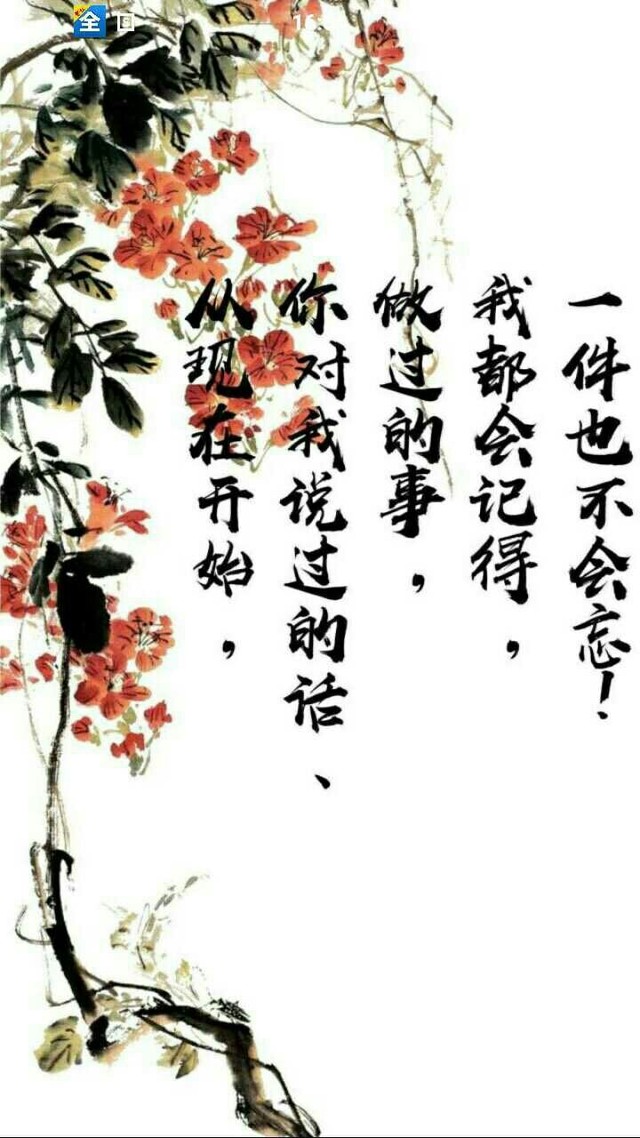 全
从现在开始，
你对我说过的话、
做过的事，
我都会记得，
一件也不会忘！